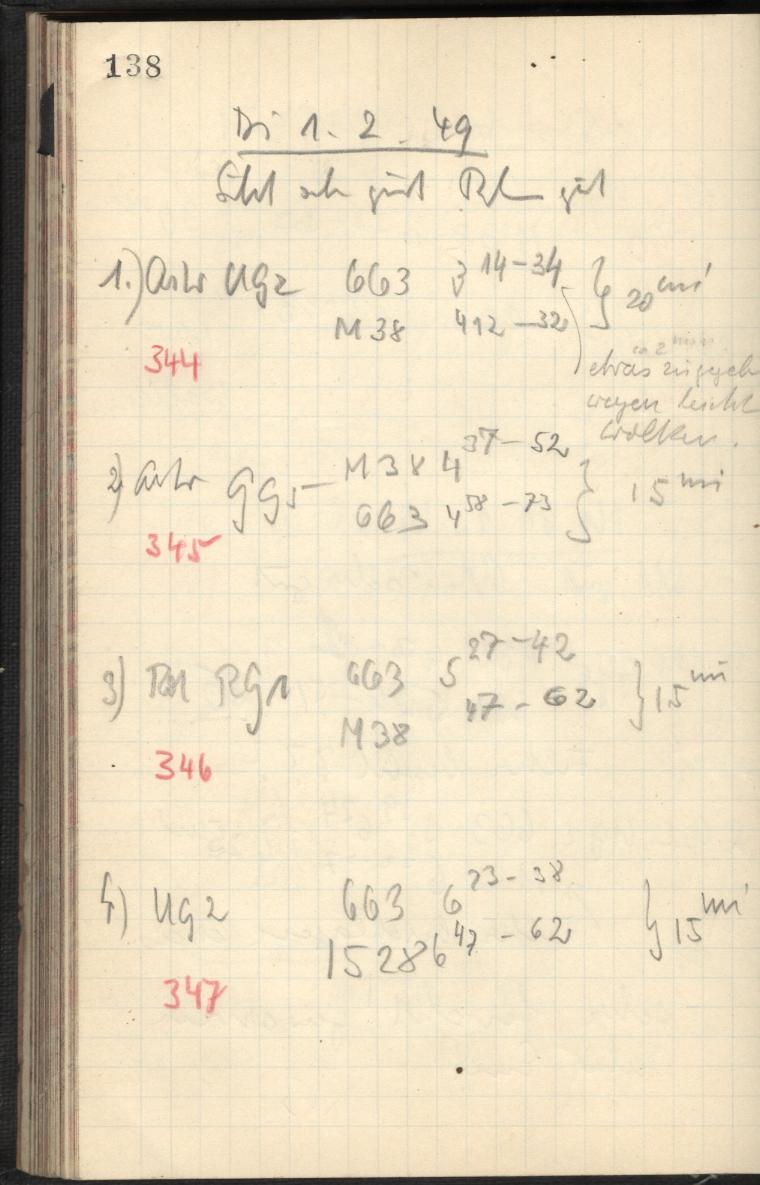 138
Di 1. 2. 49
Sicht sehr gut Rh gut
1.) Astr UG2 663 3 14-34 } 20 mi
M38 412-32
344
ca 2 min
etwas zugegeb
wegen leicht
Wolken.
2) Astr GG5 M38 4 37-52 } 15 mi
663 4 58-73
345
3) Rot RG1 663 5 27-42 } 15 mi
M38 47-62
346
4) UG2 663 6 23-38 } 15 mi
1528 6 47-62
347